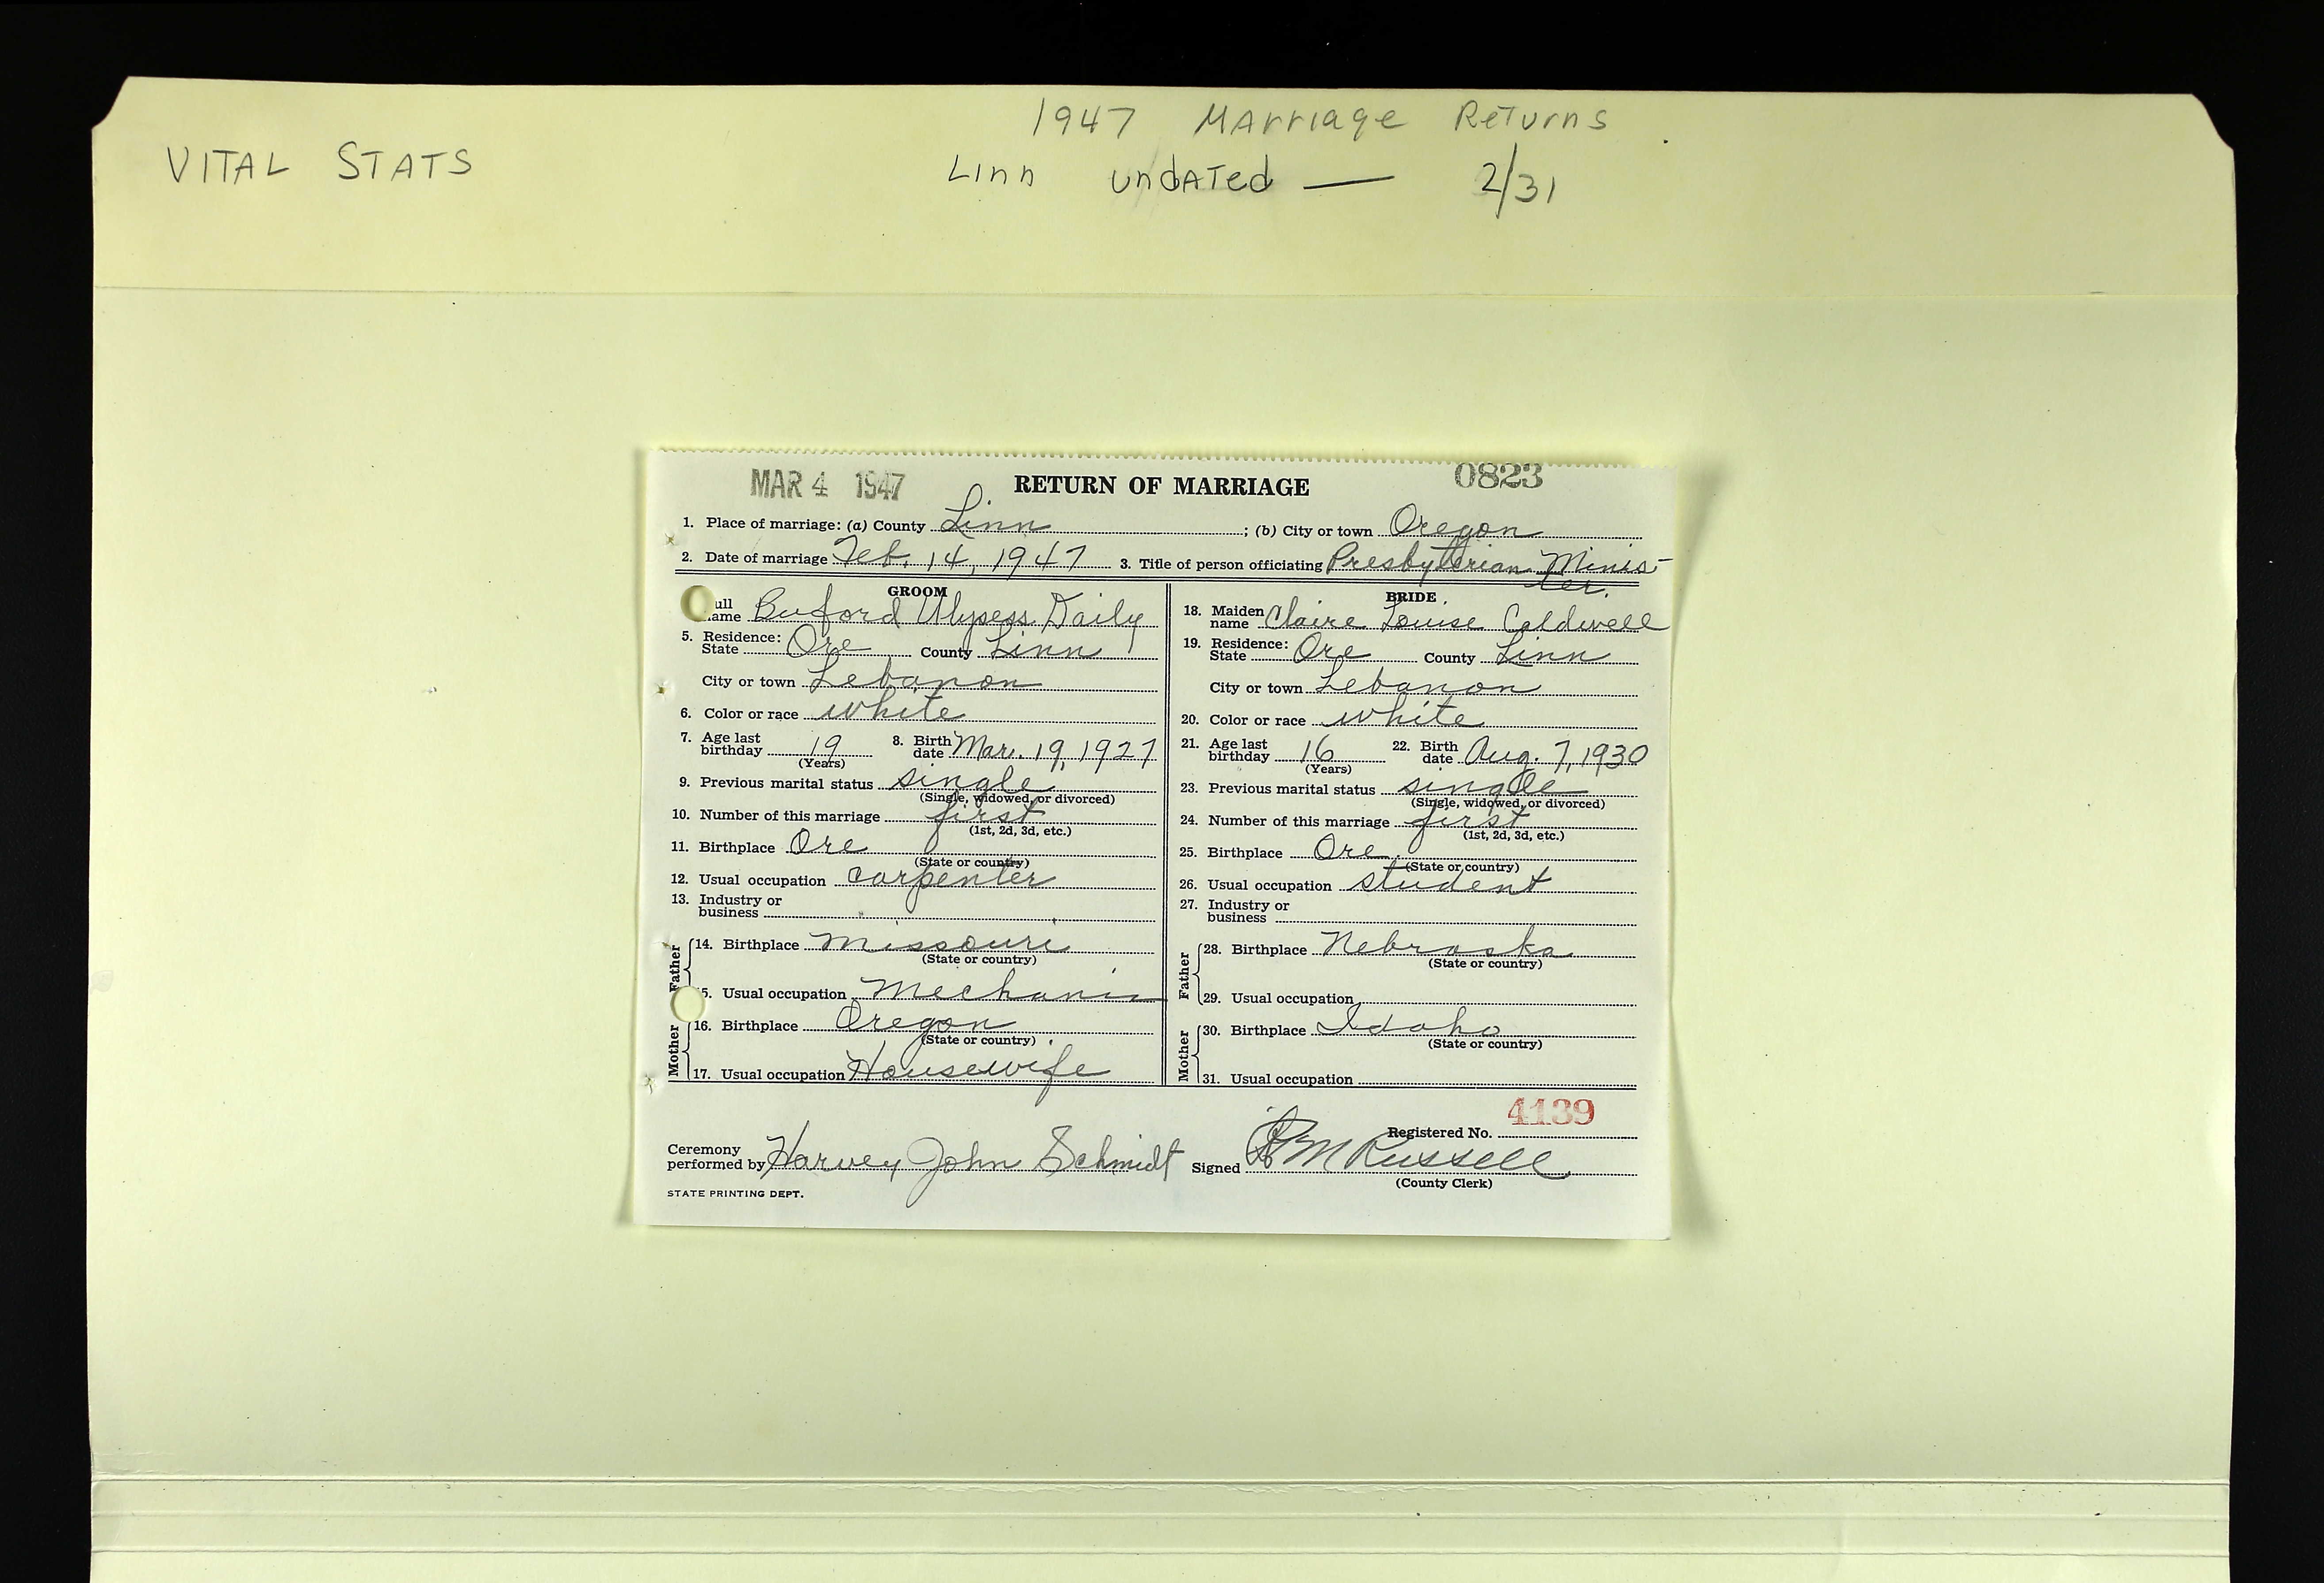 1947 Marriage Returns
VITAL STATS
Linn undated — 2/31
MAR 4 1947 RETURN OF MARRIAGE 0823
1. Place of marriage: (a) County Linn ; (b) City or town Oregon
2. Date of marriage Feb. 14, 1947 3. Title of person officiating Presbyterian Minis-
ter.
GROOM
ull
ame Buford Ulysess Daily
5. Residence:
State Ore County Linn
City or town Lebanon
6. Color or race white
7. Age last
birthday 19 8. Birth
date Mar. 19, 1927
(Years)
9. Previous marital status single
(Single, widowed, or divorced)
10. Number of this marriage first
(1st, 2d, 3d, etc.)
11. Birthplace Ore
(State or country)
12. Usual occupation carpenter
13. Industry or
business
Father
14. Birthplace Missouri
(State or country)
5. Usual occupation Mechanic
Mother
16. Birthplace Oregon
(State or country)
17. Usual occupation Housewife
BRIDE
18. Maiden
name Claire Louise Caldwell
19. Residence:
State Ore County Linn
City or town Lebanon
20. Color or race white
21. Age last
birthday 16 22. Birth
date Aug. 7, 1930
(Years)
23. Previous marital status single
(Single, widowed, or divorced)
24. Number of this marriage first
(1st, 2d, 3d, etc.)
25. Birthplace Ore
(State or country)
26. Usual occupation student
27. Industry or
business
Father
28. Birthplace Nebraska
(State or country)
29. Usual occupation
Mother
30. Birthplace Idaho
(State or country)
31. Usual occupation
4139
Registered No.
Ceremony
performed by Harvey John Schmidt Signed R M Russell
(County Clerk)
STATE PRINTING DEPT.